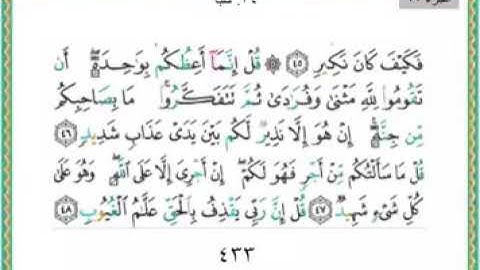 فَكَيْفَ كَانَ نَكِيرِ ٤٥ ۞ قُلْ إِنَّمَآ أَعِظُكُم بِوَٰحِدَةٍ ۖ أَن
تَقُومُوا۟ لِلَّهِ مَثْنَىٰ وَفُرَٰدَىٰ ثُمَّ تَتَفَكَّرُوا۟ ۚ مَا بِصَاحِبِكُم
مِّن جِنَّةٍ ۚ إِنْ هُوَ إِلَّا نَذِيرٌ لَّكُم بَيْنَ يَدَىْ عَذَابٍ شَدِيدٍ ٤٦
قُلْ مَا سَأَلْتُكُم مِّنْ أَجْرٍ فَهُوَ لَكُمْ ۖ إِنْ أَجْرِىَ إِلَّا عَلَى ٱللَّهِ ۖ وَهُوَ عَلَىٰ
كُلِّ شَىْءٍ شَهِيدٌ ٤٧ قُلْ إِنَّ رَبِّى يَقْذِفُ بِٱلْحَقِّ عَلَّٰمُ ٱلْغُيُوبِ ٤٨
٤٣٣